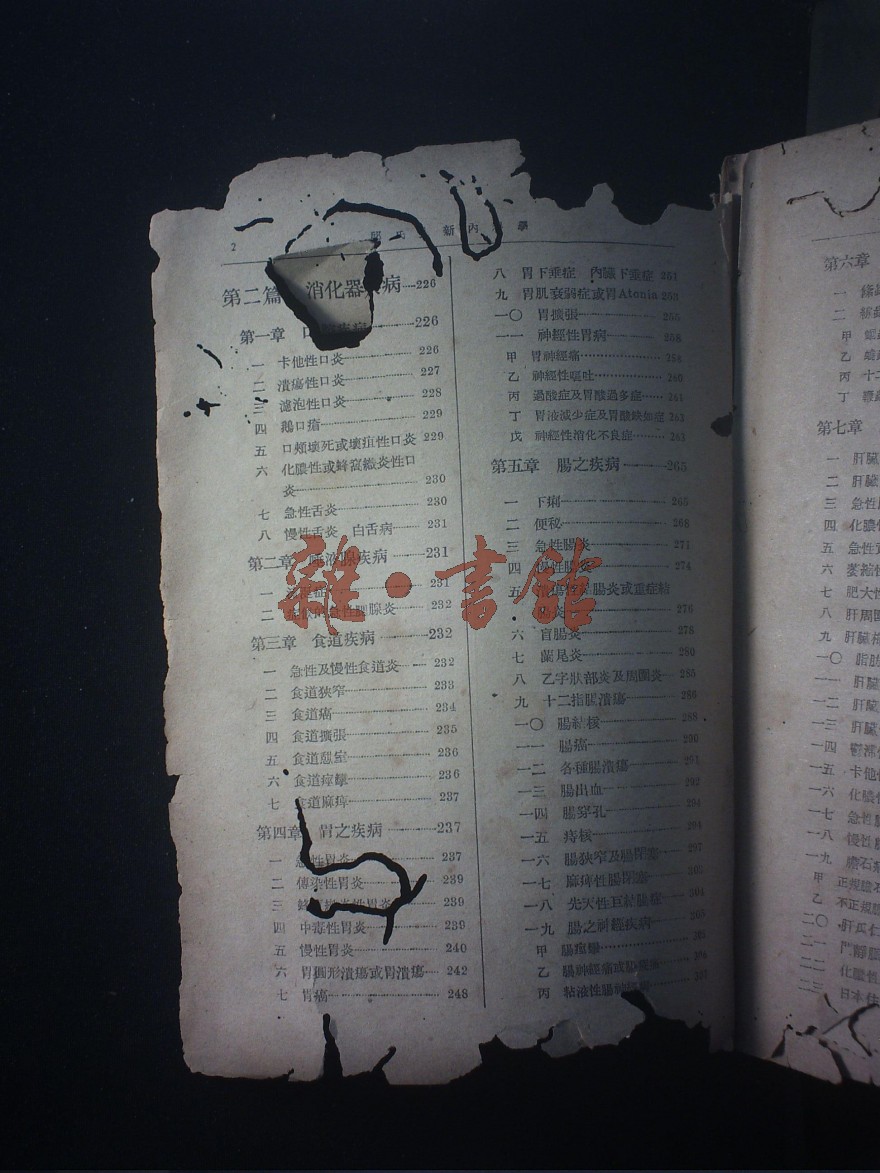 2
新內 學
第二篇 消化器 病 226
第一章 口 疾病 226
一 卡他性口炎 226
二 潰瘍性口炎 227
三 濾泡性口炎 228
四 鵝口瘡 229
五 口頰壞死或壞疽性口炎 229
六 化膿性或蜂窩織炎性口
炎 230
七 急性舌炎 230
八 慢性舌炎 白舌病 231
第二章 唾液腺疾病 231
一 231
二 急性 腺炎 232
第三章 食道疾病 232
一 急性及慢性食道炎 232
二 食道狹窄 233
三 食道癌 234
四 食道擴張 235
五 食道憩室 236
六 食道痙攣 236
七 食道麻痺 237
第四章 胃之疾病 237
一 急性胃炎 237
二 傳染性胃炎 239
三 炎性胃炎 239
四 中毒性胃炎 239
五 慢性胃炎 240
六 胃圓形潰瘍或胃潰瘍 242
七 胃癌 248
八 胃下垂症 內臟下垂症 251
九 胃肌衰弱症或胃Atonia 253
一〇 胃擴張 255
一一 神經性胃病 258
甲 胃神經痛 258
乙 神經性嘔吐 260
丙 過酸症及胃酸過多症 261
丁 胃液減少症及胃酸缺如症 262
戊 神經性消化不良症 263
第五章 腸之疾病 265
一 下痢 265
二 便秘 268
三 急性腸炎 271
四 慢性腸炎 274
五 潰瘍性 腸炎或重症結
腸炎 276
六 盲腸炎 278
七 蘭尾炎 280
八 乙字狀部炎及周圍炎 285
九 十二指腸潰瘍 286
一〇 腸結核 288
一一 腸癌 290
一二 各種腸潰瘍 291
一三 腸出血 292
一四 腸穿孔 294
一五 痔核 294
一六 腸狹窄及腸閉塞 297
一七 麻痺性腸閉塞 303
一八 先天性巨結腸症 304
一九 腸之神經疾病 305
甲 腸痙攣 305
乙 腸神經痛或
丙 粘液性腸
第六章
一
二
甲
乙
丙 十二
丁
第七章
一 肝臟
二 肝臟
三 急性
四 化膿
五 急性
六 萎縮性
七 肥大性
八 肝周圍
九 肝臟
一〇 脂肪
一一 肝臟
一二 肝臟
一三 肝臟
一四
一五 卡他
一六 化膿
一七 急性
一八 慢性
一九 膽石
甲 正規膽石
乙 不正規膽
二〇 肝
二一 門靜脈
二二 化膿性
二三 日本住
雜·書館